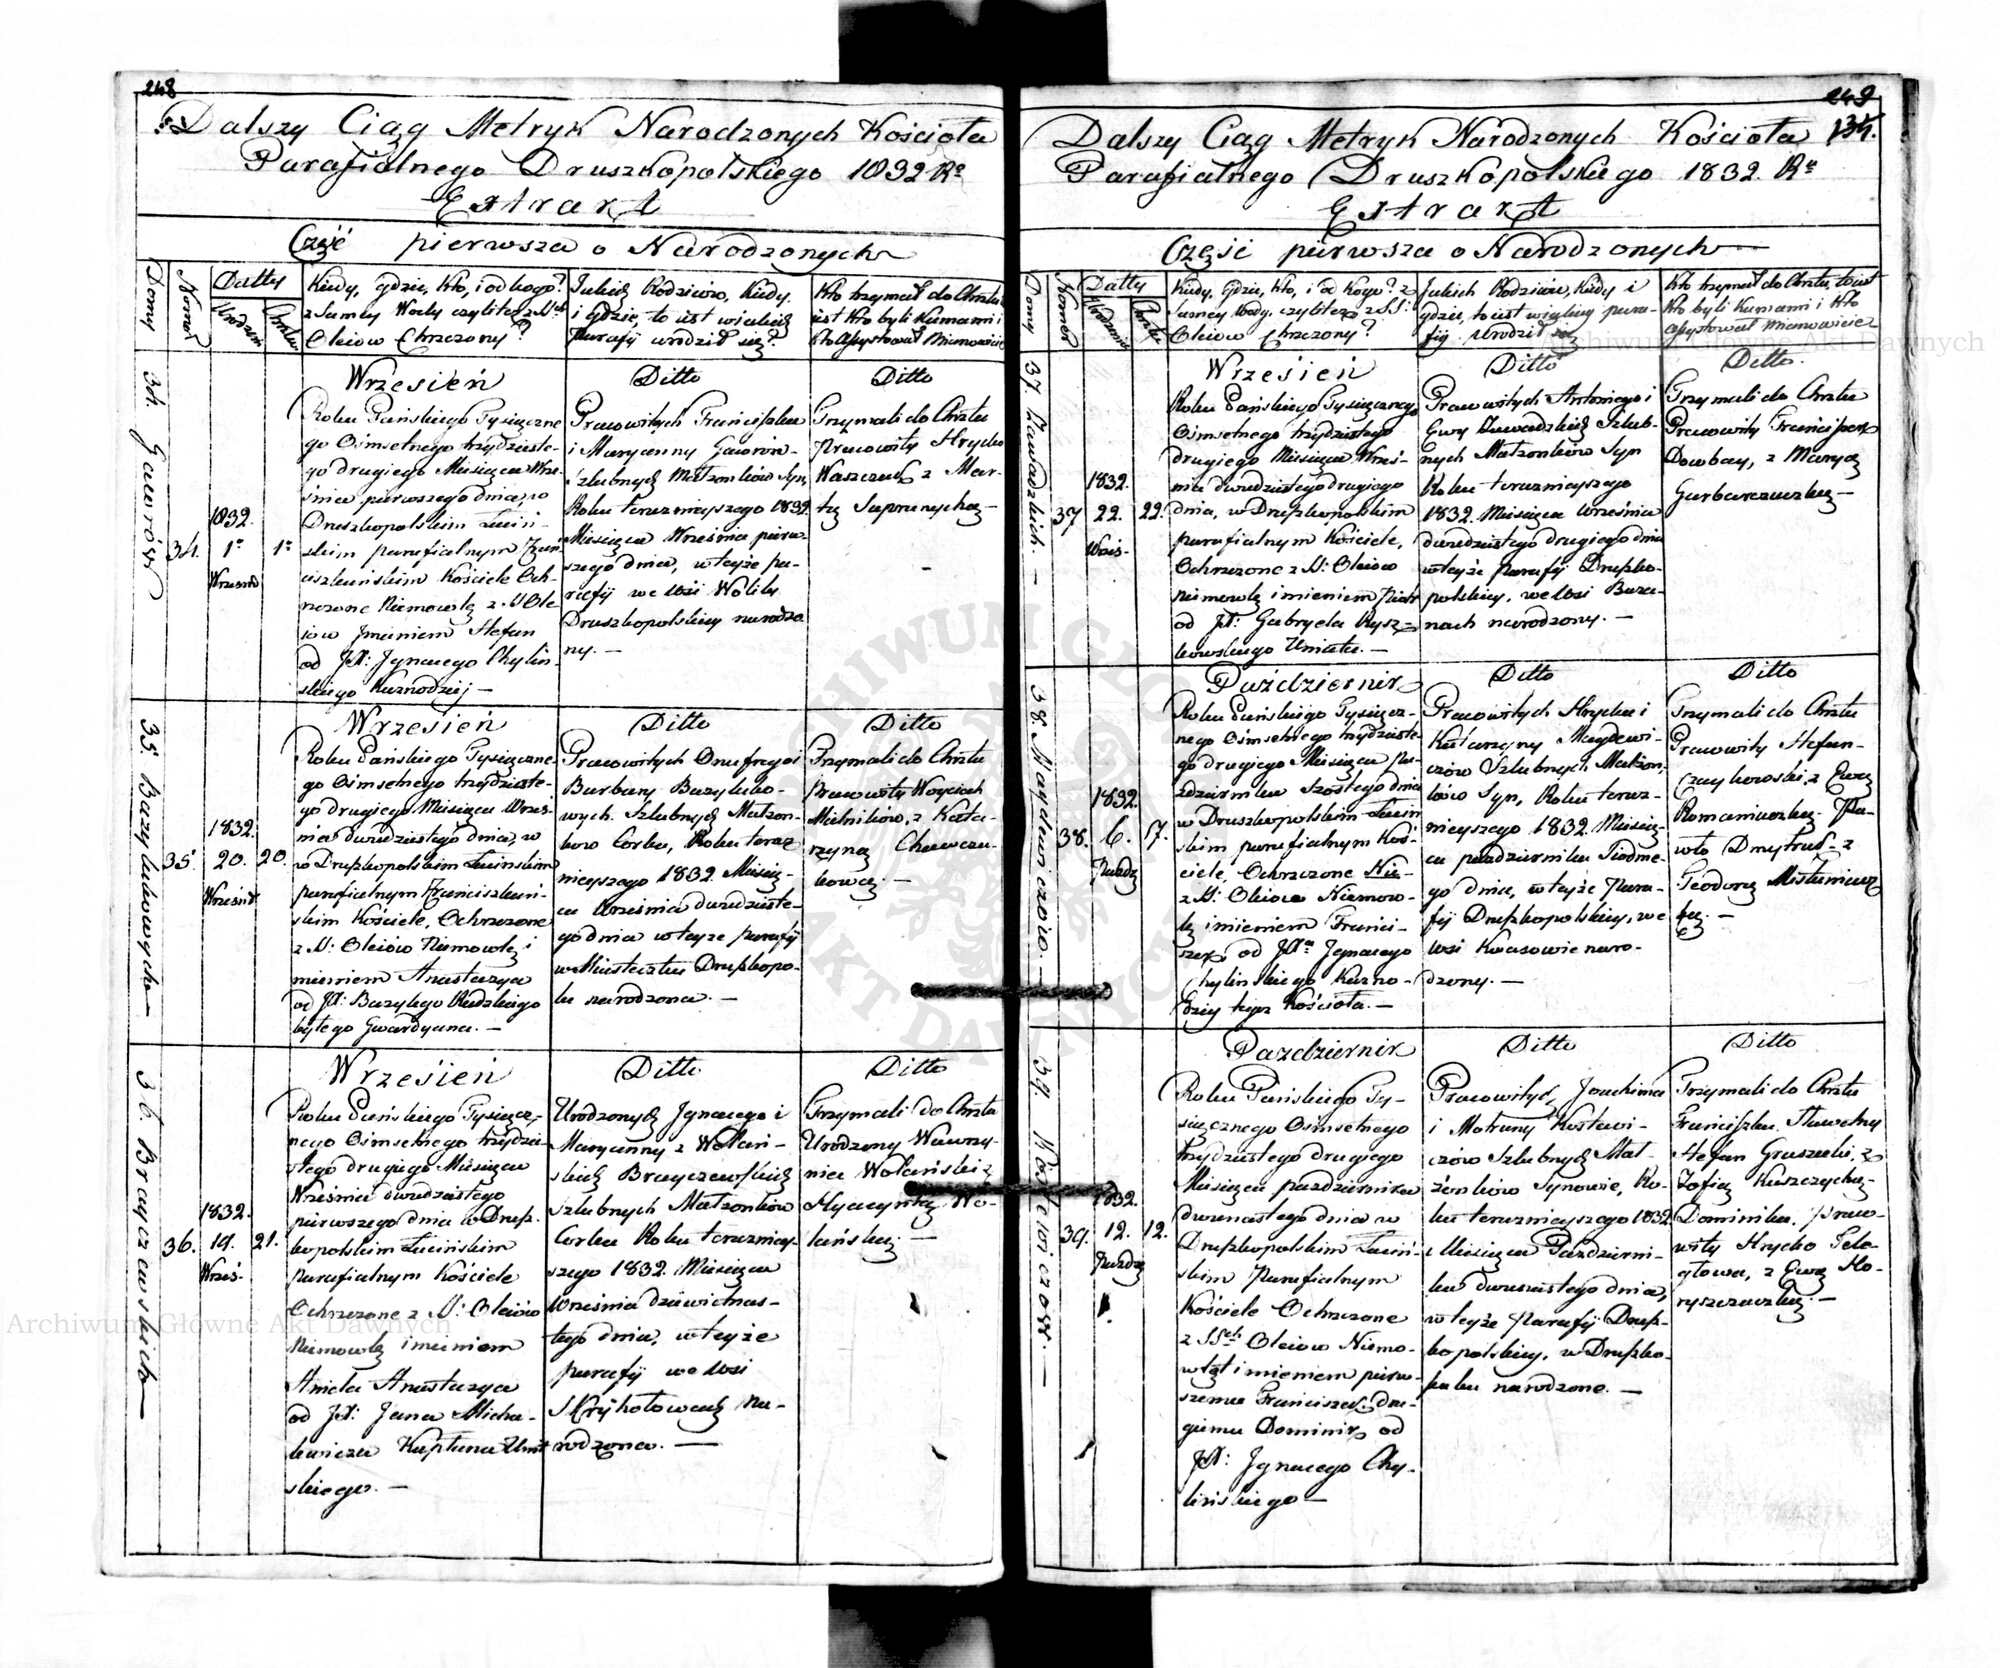 248
Dalszy Ciąg Metryk Narodzonych Kościoła
Parafialnego Druszkopolskiego 1832 Ro
Extrakt
Część pierwsza o Narodzonych
Domy
Numer
Datty
Urodzenia
Chrztu
Kiedy, gdzie, kto, i od kogo?
z Samey Wody czyli też z SSch
Oleiow Chrzczony?
Jakich Rodziców, Kiedy
i gdzie, to iest w iakiey
Parafij urodził się?
Kto trzymał do Chrztu
iest kto byli Kumami i
kto assystował Mianowicie
34. Gawrónów
34.
1832.
1o
Wrzesnia
1o
Wrzesień
Roku Pańskiego Tysiączne
go Ośmsetnego trzydzieste-
go drugiego Miesiąca Wrze-
śnia pierwszego dnia, w
Druszkopolskim Łaciń-
skim parafialnym Fran-
ciszkańskim Kościele Och-
rzczone Niemowlę z S Ole
iow Jmieniem Stefan
od JX: Jgnacego Chylin-
skiego Kaznodziej —
Ditto
Pracowitych Franciszka
i Maryanny Gawron-
ślubnych Małżonków Syn,
Roku teraznieyszego 1832
Miesiąca Września pierw-
szego dnia, w teyże pa-
rafij we Wsi Wólka
Druszkopolskiey narodzo
ny. —
Ditto
Trzymali do Chrztu
Pracowity Hryćko
Waszczuk z Mar-
tą Saprunychą —
35. Bazylukowych
35.
1832.
20.
Wrzesnia
20.
Wrzesień
Roku Pańskiego Tysiączne
go Ośmsetnego trzydzieste-
go drugiego Miesiąca Wrześ-
nia dwudziestego dnia, w
w Druszkopolskim Łacinskim
parafialnym Franciszkań-
skim Kościele, Ochrzczone
z S: Oleiów Niemowlę i
mieniem Anastazya
od JX: Bazylego Rudzkiego
byłego Gwardyana. —
Ditto
Pracowitych Onufrego i
Barbary Bazyluko-
wych Szlubnych Małżon-
kow Corka, Roku teraz
nieyszego 1832 Miesią-
ca Września dwudzieste-
go dnia w teyze parafij
w Miasteczku Druszkopo-
lu narodzona. —
Ditto
Trzymali do Chrztu
Pracowity Woyciech
Mielników, z Kata-
rzyną Chawczu-
kową. —
36. Brayczewskich
36.
1832.
19.
Wrześ-
21.
Wrzesień
Roku Pańskiego Tysiącz-
nego Ośmsetnego trzydzie-
stego drugiego Miesiąca
Września dwudziestego
pierwszego dnia w Drusz-
kopolskim Łacińskim
parafialnym Kościele
Ochrzczone z S: Oleiów
Niemowlę imieniem
Aniela Anastazya
od JX: Jana Micha-
lewicza Kapłana Unit
skiego. —
Ditto
Urodzonych Jgnacego i
Maryanny z Wolań-
skich Brayczewskich
szlubnych Małżonków
Corka Roku teraznieys-
szego 1832. Miesiąca
Września dziewietnas-
tego dnia, w teyże
parafij we Wsi
Skryhołowach na-
rodzona. —
Ditto
Trzymali do Chrztu
Urodzony Wawrzy-
niec Wolański z
Hyacyntą Wo-
lańską. —
249
134.
Dalszy Ciąg Metryk Narodzonych Kościoła
Parafialnego Druszkopolskiego 1832. Ro
Extrakt
Część pierwsza o Narodzonych
Domy
Numer
Datty
Urodzenia
Chrztu
Kiedy, Gdzie, kto, i od Kogo? z
Samey Wody, czyli też z SS:
Oleiow Chrzczony?
Jakich Rodziców, Kiedy i
gdzie, to iest w iakiey para-
fij Urodził się
Kto trzymał do Chrztu, to iest
kto byli Kumami i kto
assystował Mianowicie?
37. Zawadzkich. —
37
1832.
22.
Wrześ-
22.
Wrzesień
Roku Pańskiego Tysiącznego
Ośmsetnego trzydziestego
drugiego Miesiąca Wrześ-
nia dwudziestego drugiego
dnia, w Druszkopolskim
parafialnym Kościele,
Ochrzczone z S: Oleiów
niemowlę imieniem Piotr
od JX: Gabryela Rysz-
kowskiego Uniata. —
Ditto
Pracowitych Antoniego i
Ewy Zawadzkich Szlub-
nych Małżonków Syn
Roku teraznieyszego
1832. Miesiąca Września
dwudziestego drugiego dnia
w teyże parafij Druszko-
polskiey, we Wsi Buza-
nach narodzony. —
Ditto.
Trzymali do Chrztu
Pracowity Franciszek
Dowbay, z Maryą
Garbarczuczką —
38. Naydewiczow. —
38.
1832.
6.
Pazdz
7.
Pażdziernik
Roku Pańskiego Tysiącz-
nego Ośmsetnego trzydzieste
go drugiego Miesiąca Pa-
zdziernika Szóstego dnia
w Druszkopolskim Łacin
skim parafialnym Koś-
ciele, Ochrzczone Nie-
z S: Oleiow Niemow-
lę imieniem Franci-
szek od JXa Jgnacego
Chylinskiego Kazno-
dziey tegoż Kościoła. —
Ditto
Pracowitych Hryćka i
Katarzyny Naydewi-
czów Szlubnych Małżon-
ków Syn, Roku teraz-
nieyszego 1832. Miesią-
ca pazdziernika Siódme-
go dnia, w teyże Para-
fij Druszkopolskiey, we
Wsi Kwasowie naro-
dzony. —
Ditto
Trzymali do Chrztu
Pracowity Stefan
Czaykowski, z Ewą
Romaniuczką Pa-
wło Dmytruk z
Teodorą
39. Kostewiczow. —
39.
1832.
12.
Pazdz
12.
Pazdziernik
Roku Pańskiego Ty-
siącznego Ośmsetnego
trzydziestego drugiego
Miesiąca pazdziernika
dwunastego dnia w
Druszkopolskim Łaciń-
skim Parafialnym
Kościele Ochrzczone
z SSch Oleiow Niemo-
wląt imieniem pierw-
szemu Franciszek, dru-
giemu Dominik od
JX: Jgnacego Chy-
lińskiego —
Ditto
Pracowitych Joachima
i Matrony Kostewi-
czów Szlubnych Mał-
żonków Synowie, Ro-
ku teraznieyszego 1832
Miesiąca Pażdzierni-
ka dwunastego dnia,
w teyże Parafij Drusz-
kopolskiey, w Druszko-
polu narodzone. —
Ditto
Trzymali do Chrztu
Franciszka. Sławetny
Stefan Gruszecki, z
Zofią Kuszczychą
Dominika. Praco-
wity Hryćko Bele-
głowa, z Ewą Ko-
ryszczuczką. —
Archiwum Główne Akt Dawnych
Archiwum Główne Akt Dawnych
ARCHIWUM GŁÓWNE
AKT DAWNYCH